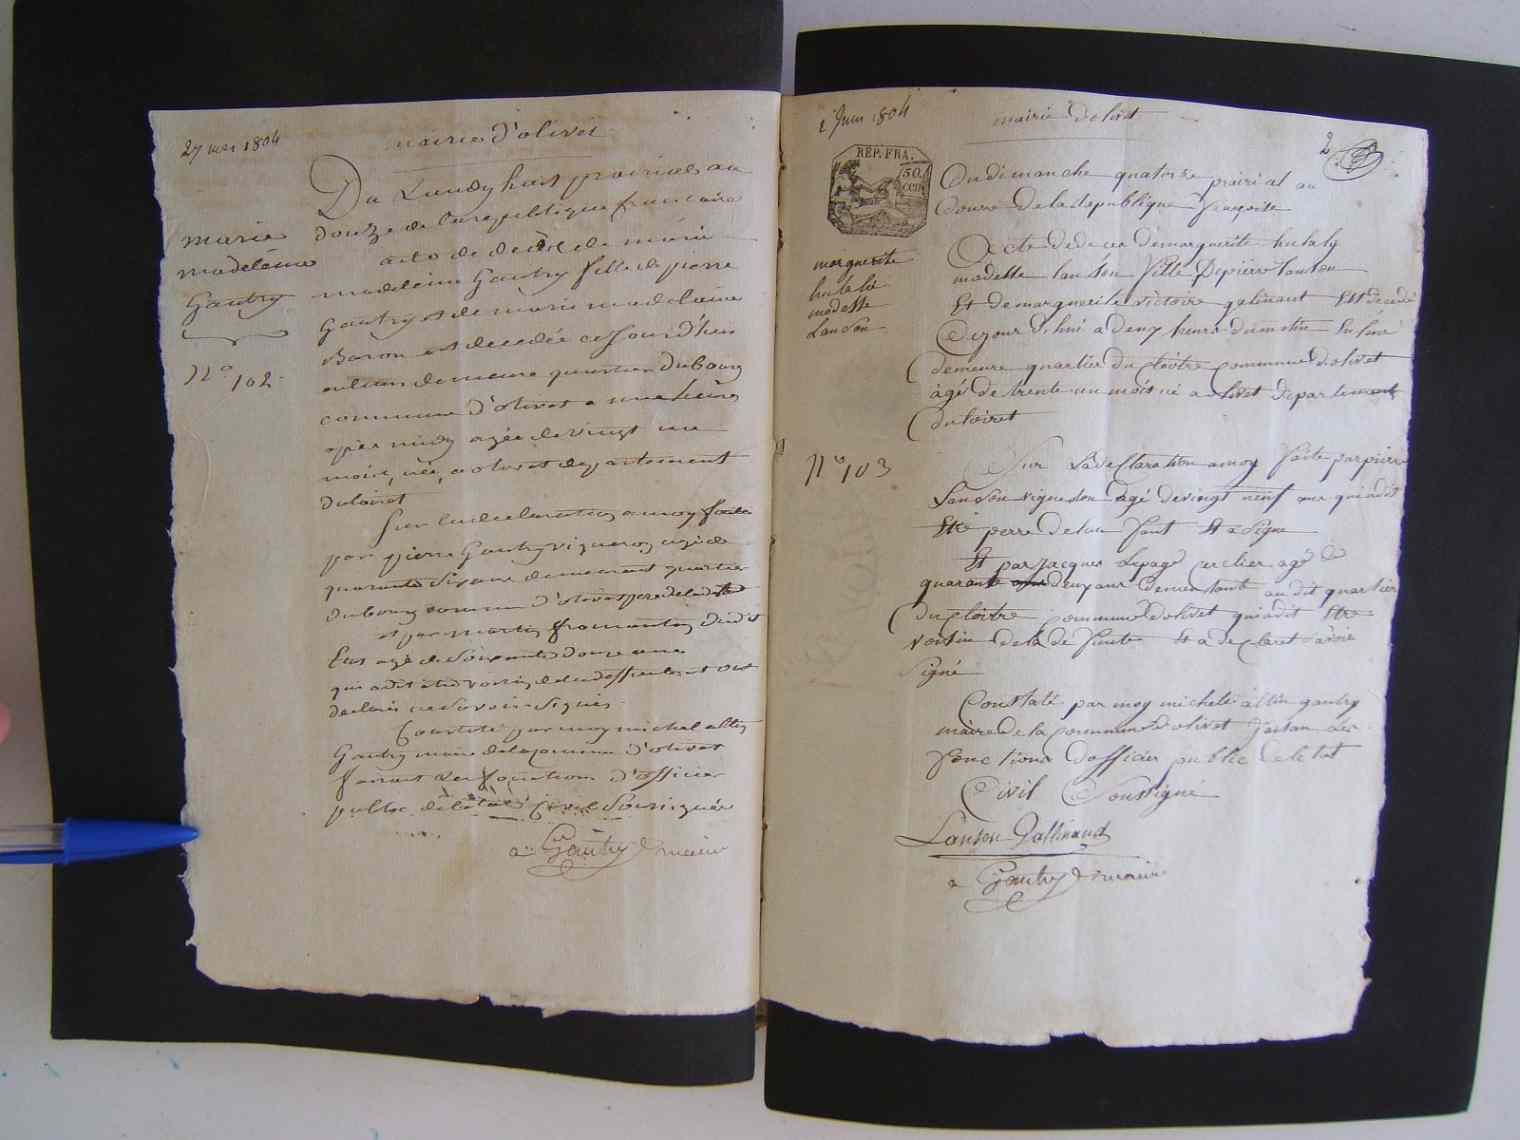 27 mai 1804
mairie d'olivet
Du Lundy huit prairial au
douze de la republique francaise
marie
madeleine
Gautry
acte de decès de marie
madeleine Gautry fille de pierre
Gautry et de marie madelaine
Baron est decedée ce Jourd'huis
demeure quartier Dubourg
commune d'olivet a une heure
après midy agée de vingt un
mois, née, a olivet departement
du loiret
N° 102
Sur la declaration a moy faite
par pierre Gautry vigneron agé de
quarante six ans demeurant quartier
dubourg commune d'olivet pere de la
et par martin fromentin dudit
Lieu agé de soixante douze ans
qui a dit etre voisin de la deffunte et ont
declaré ne savoir signés
Constaté par moy michel
Gautry maire de la commune d'olivet
faisant les fonctions d'officier
public de l'état Civil Soussignés
Gautry maire
2 Juin 1804
mairie dolivet
2
REP. FRA.
50
CEN.
Du dimanche quatorze prairial au
douze de la Republique françoise
marguerite
modeste
Lanson
Acte de deces de marguerite
modeste lanson fille de pierre lanson
Et de marguerite victoire galinant Est decedé
Cejour dhui a deux heure du matin
demeure quartier du cloitre commune dolivet
âgé de trente un mois né a olivet departement
du loiret
N° 103
Sur la declaration a moy faite par pierre
Lanson vigneron agé de vingt neuf ans qui a dit
Etre perre de la Et a Signé
Et par Jacques Lepage agé de
quarante deux ans demeurant au dit quartier
du cloitre commune dolivet qui a dit Etre
voisin de la defunte Et a declaret savoir
Signé
Constaté par moy michel gautry
maire de la commune dolivet faisan les
fonctions dofficier public de letat
Civil Soussigné
Lanson Gallinand
Gautry maire